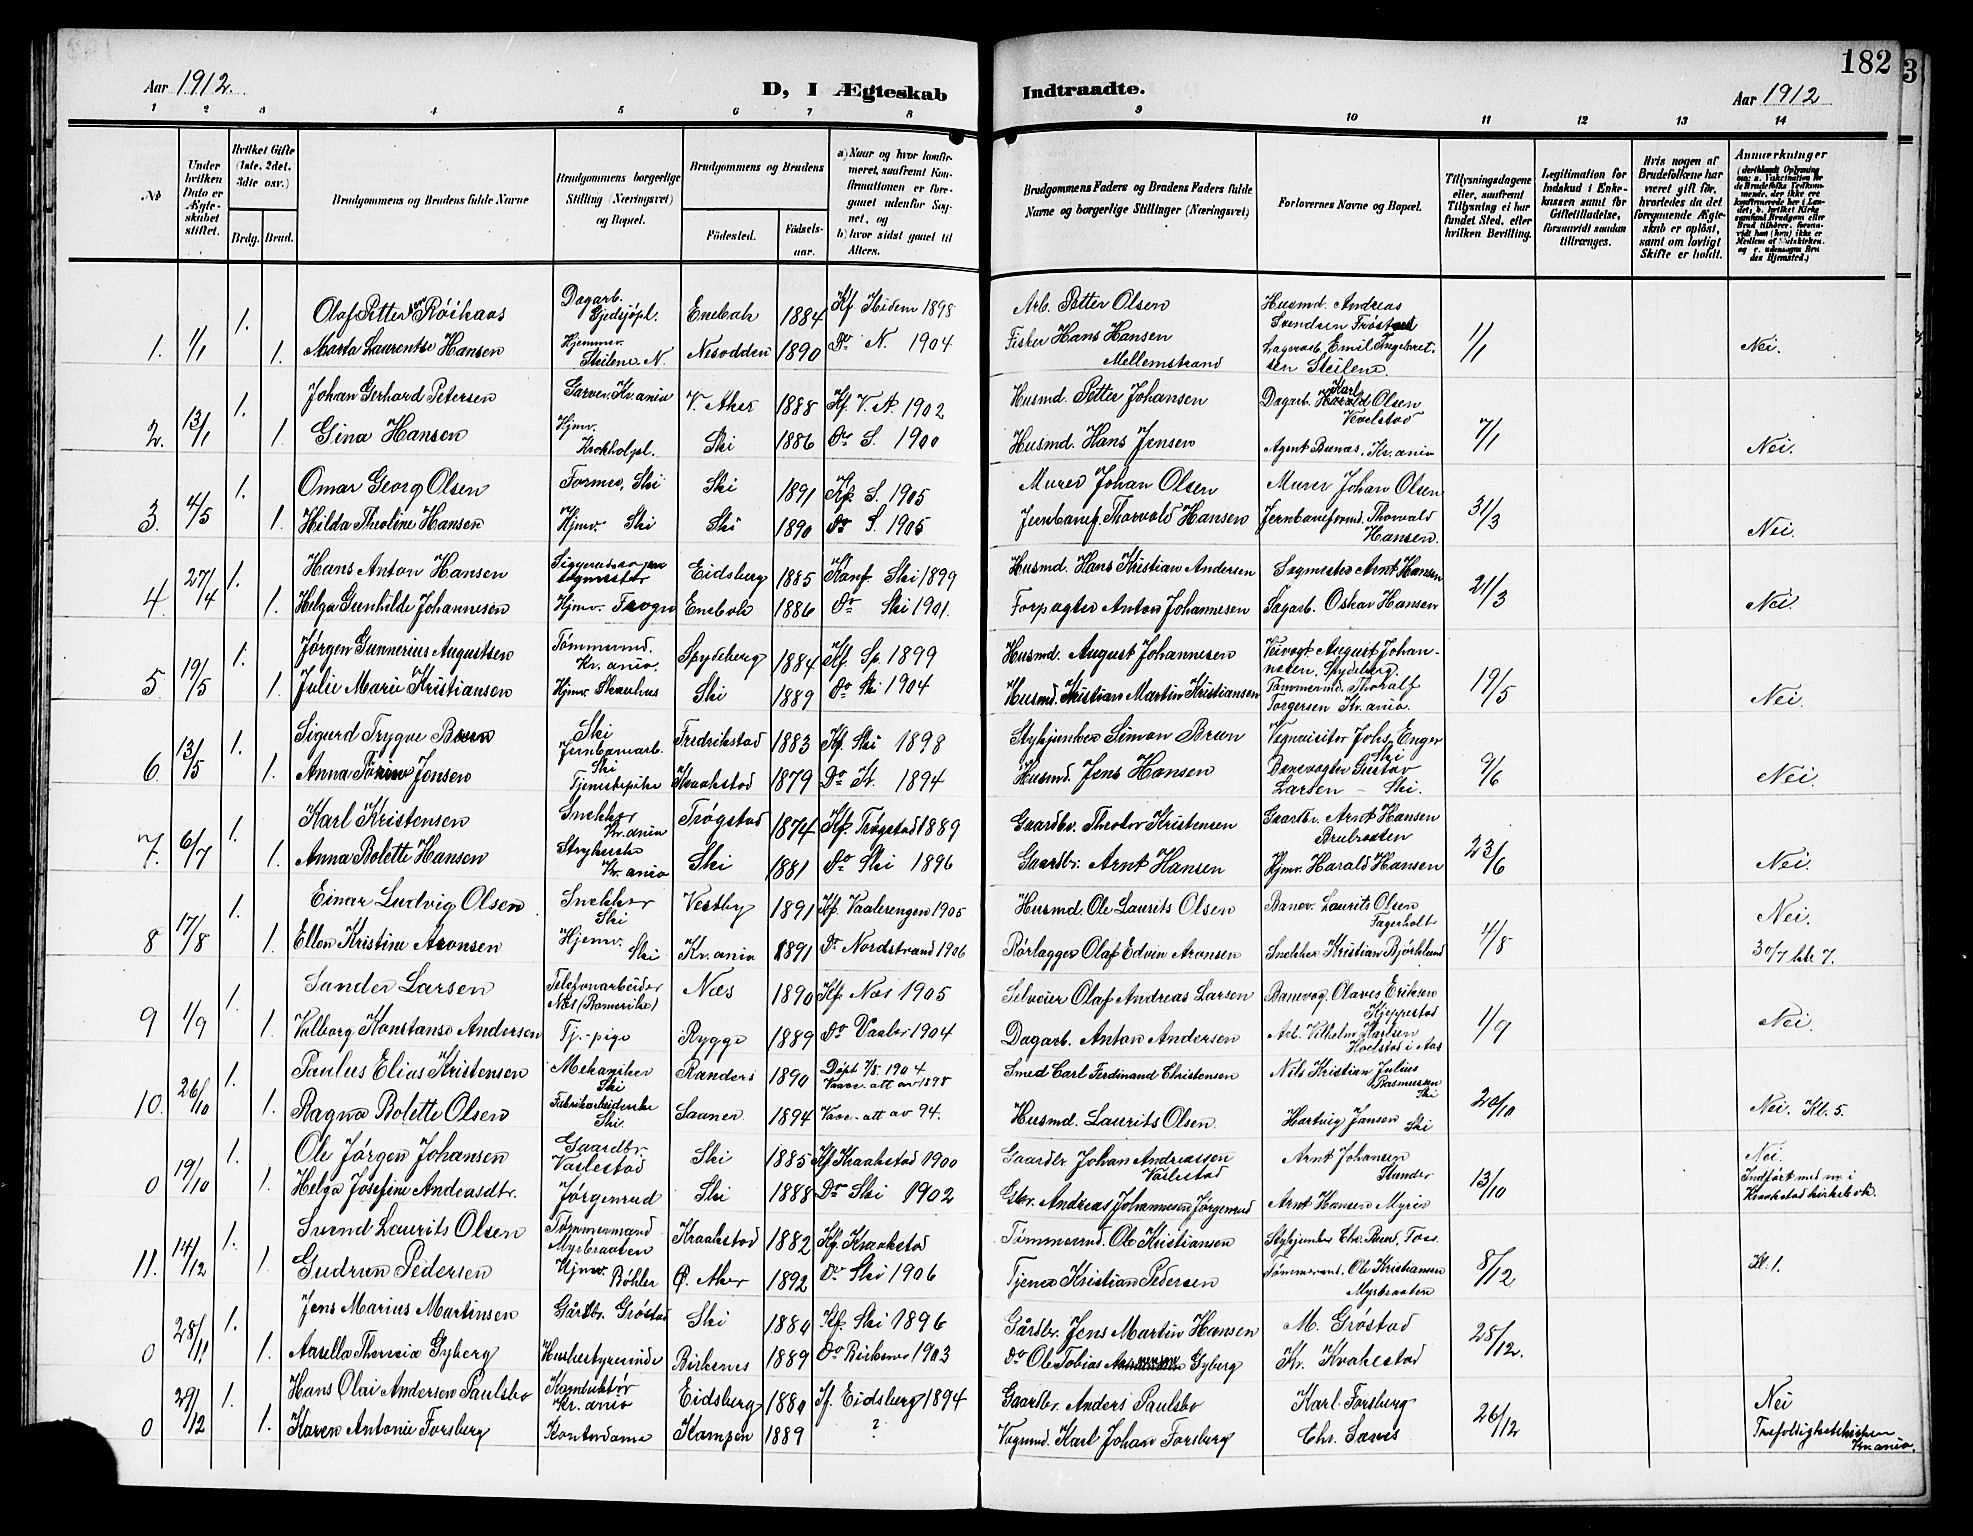 182
Aar 1912.
D, I Ægteskab
Indtraadte.
Aar 1912
1 2 3 4 5 6 7 8 9 10 11 12 13 14
No
Under hvilken Dato er Ægteskabet stiftet.
Hvilket Gifte (1ste, 2det, 3die osv.)
Brdg. Brud.
Brudgommens og Brudens fulde Navne
Brudgommens borgerlige Stilling (Næringsvei) og Bopæl.
Brudgommens og Brudens
Fødested. Fødselsaar.
a) Naar og hvor konfirmeret, saafremt Konfirmationen er foregaaet udenfor Sognet, og
b) hvor sidst gaaet til Alters.
Brudgommens Faders og Brudens Faders fulde Navne og borgerlige Stillinger (Næringsvei)
Forlovernes Navne og Bopæl.
Tillysningsdagene eller, saafremt Tillysning ei har fundet Sted, efter hvilken Bevilling.
Legitimation for Indskud i Enkekassen samt for Giftetilladelse, forsaavidt saadan tiltrænges.
Hvis nogen af Brudefolkene har været gift før, hvorledes da det foregaaende Ægteskab er opløst, samt om lovligt Skifte er holdt.
Anmærkninger
1. 1/1 1. Olaf Petter Røihaas Dagarb. Gjedsjøpl. Enebak 1884 Kf Skidem 1898 Arb. Petter Olsen Husmd. Andreas Svendsen 1/1
1. Marta Laurentse Hansen Hjemmev. Steilene N. Nesodden 1890 Do N. 1904 Fisker Hans Hansen Mellemstrand Lagerarb. Emil Ingebretsen Steilene. Nei.
2. 13/1 1. Johan Gerhard Petersen Garver. Kr.ania V. Aker 1888 Kf. V. A. 1902 Husmd. Petter Johansen Dagarb. Karl Olsen Vevelstad 7/1
1. Gina Hansen Hjmv. Krokholpl. Ski 1886 Do S. 1900 Husmd. Hans Jensen Agent Bunæs, Kr.ania Nei.
3. 4/5 1. Omar Georg Olsen Formes, Ski Ski 1891 Kf. S. 1905 Murer Johan Olsen Murer Johan Olsen 31/3
1. Hilda Theoline Hansen Hjmv. Ski Ski 1890 do S. 1905 Jernbanef. Thorvald Hansen Jernbaneformd. Thorvald Hansen. Nei.
4. 27/4 1. Hans Anton Hansen Eidsberg 1885 Konf. Ski 1899 Husmd. Hans Kristian Andersen Sagmester Arnt Hansen 21/3
1. Helga Gunhilde Johannesen Hjmv. Trogn Enebak 1886 Do Ski 1901. Forpagter Anton Johannesen Sagarb. Oskar Hansen Nei.
5. 19/5 1. Jørgen Gunnerius Augustsen Tømmermd. Kr.ania. Spydeberg 1884 Kf. Sp. 1899 Husmd. August Johannesen Veivogt August Johannesen, Spydeberg 19/5
1. Julie Marie Kristiansen Hjmv Skauhus Ski 1889 Do Ski 1904 Husmd. Kristian Martin Kristiansen Tømmermd. Thoralf Torgersen Kr.ania. Nei.
6. 13/5 1. Sigurd Trygve Bruen Ski Jernbanearb. Fredrikstad 1883 Kf. Ski 1898 Stykjunker Simon Bruen Vognvisitør Johs. Enger Ski 9/6
1. Anna Jensen Ski Tjenestepike Kraakstad 1879 Do Kr. 1894 Husmd. Jens Hansen Banevogter Gustav Larsen - Ski. Nei.
7. 6/7 1. Karl Kristensen Snekker Kr.ania Trøgstad 1874 Kf. Trøgstad 1889 Gaardbr. Theodor Kristensen Gaardbr. Arnt Hansen Brubraaten 23/6
1. Anna Bolette Hansen Strykerske Kr.ania Ski 1881 Do Ski 1896 Gaardbr. Arnt Hansen Hjmv. Harald Hansen Nei.
8 17/8 1. Einar Ludvig Olsen Snekker Ski Vestby 1891 Kf. Vaalerengen 1905 Husmd. Ole Laurits Olsen Banev. Laurits Olsen Fagerholt 4/8 Nei.
1. Ellen Kristine Aronsen Hjemv. Ski Kr.ania 1891 Do Nordstrand 1906 Rørlægger Olaf Edvin Aronsen Snekker Kristian Bjørklund 30/7 kl. 7.
9 1/9 1. Sander Larsen Telefonarbeider Næs (Romerike) Næs 1890 Kf. Næs 1905 Selveier Olaf Andreas Larsen Banevog. Olaves Eriksen Kjeppestad 1/9
1. Valborg Konstanse Andersen Tj.-pige Rygge 1889 Do Vaaler 1904 Dagarb. Anton Andersen Arb. Vilhelm Karlsen Holstad i Aas Nei.
10. 26/10 1. Paulus Elias Kristensen Mekaniker Ski Randers 1890 Døpt 7/8. 1904 Vacc. att av 1898 Smed Carl Ferdinand Christensen Nils Kristian Julius Rasmussen Ski 20/10
1. Ragna Bolette Olsen Fabrikarbeiderske Ski. Saaner 1894 Vacc. att av 94. Husmd. Laurits Olsen. Hartvig Jansen Ski Nei. Kl. 5.
0 19/10 1. Ole Jørgen Johansen Gaardbr. Vaslestad Ski 1885 Kf. Kraakstad 1900 Gaardbr Johan Andreassen Vaslestad Arnt Johansen Stunder 13/10 Nei.
1. Helga Josefine Andreasdtr. Jørgenrud Ski 1888 Do Ski 1902 Gbr. Andreas Johannesen Jørgenrud Arnt Hansen Myrer Indført med nr. i Kraakstad kirkebok.
11. 14/12 1. Svend Laurits Olsen Tømmermand Myrbraaten Kraakstad 1882 Kf. Kraakstad Tømmermd. Ole Kristiansen Stykjunker Chr. Brud. Foss. 8/12
1. Gudrun Pedersen Hjmv. Bøhler Ø. Aker 1892 Do Ski 1906 Tjener Kristian Pedersen Tømmermd. Ole Kristiansen Myrbraaten Kl. 1.
0 28/11 1. Jens Marius Martinsen Gårdbr. Grøstad Ski 1880 Kf. Ski 1896 Gårdbr. Jens Martin Hansen M. Grøstad 28/12.
1. Aasella Theresia Gyberg Husbestyrerinde Birkenes 1889 Do Birkenes 1903 do Ole Tobias Gyberg Kr. Kvakestad
0 29/12 1. Hans Olai Andersen Paulsbo Konduktør Kr.ania Eidsberg 1880 Kf. Eidsberg 1894 Gaardbr. Anders Paulsbo Karl Forsberg 26/12 Nei
1. Karen Antonie Forsberg Kontordame Kampen 1889 ? Vogmd. Karl Johan Forsberg Chr. Saves Trefoldighetskirken Kr.ania.